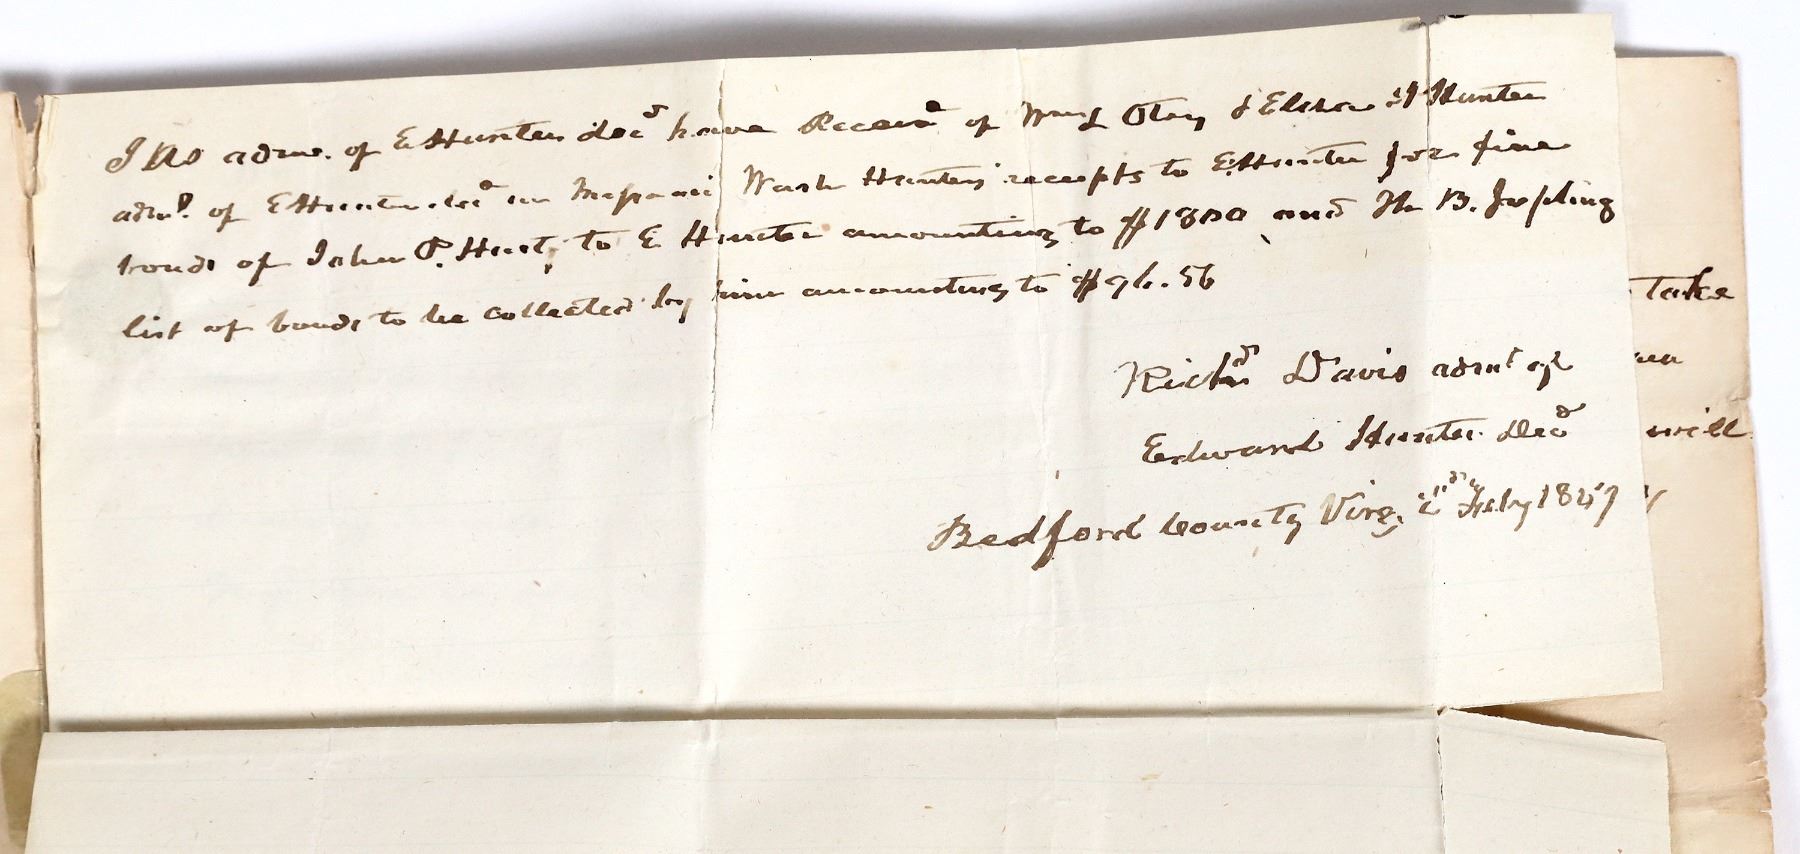 I as admr. of E Hunter decd have Receivd of Wm L Otey & Elisha H Hunter
admr. of E Hunter decd in Missouri Wash Hunters receipts to E. Hunter for five
bonds of John P. Hust, to E Hunter amounting to $1800 and Th B. Jopling
list of bonds to be collected by him amounting to $96.56
Richd Davis admr of
Edward Hunter Decd
Bedford County Virg, 2nd Feby 1847
take
will